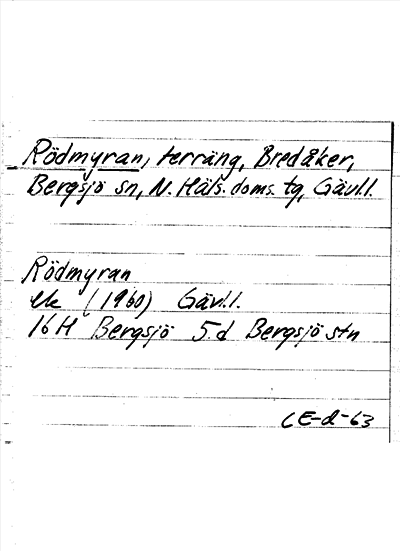 Rödmyran, terräng, Bredåker,
Bergsjö sn, N. Häls. doms. tg, Gävl.l.
Rödmyran
ek (1960) Gävl.l.
16H Bergsjö 5.d Bergsjö stn
CE-d-63